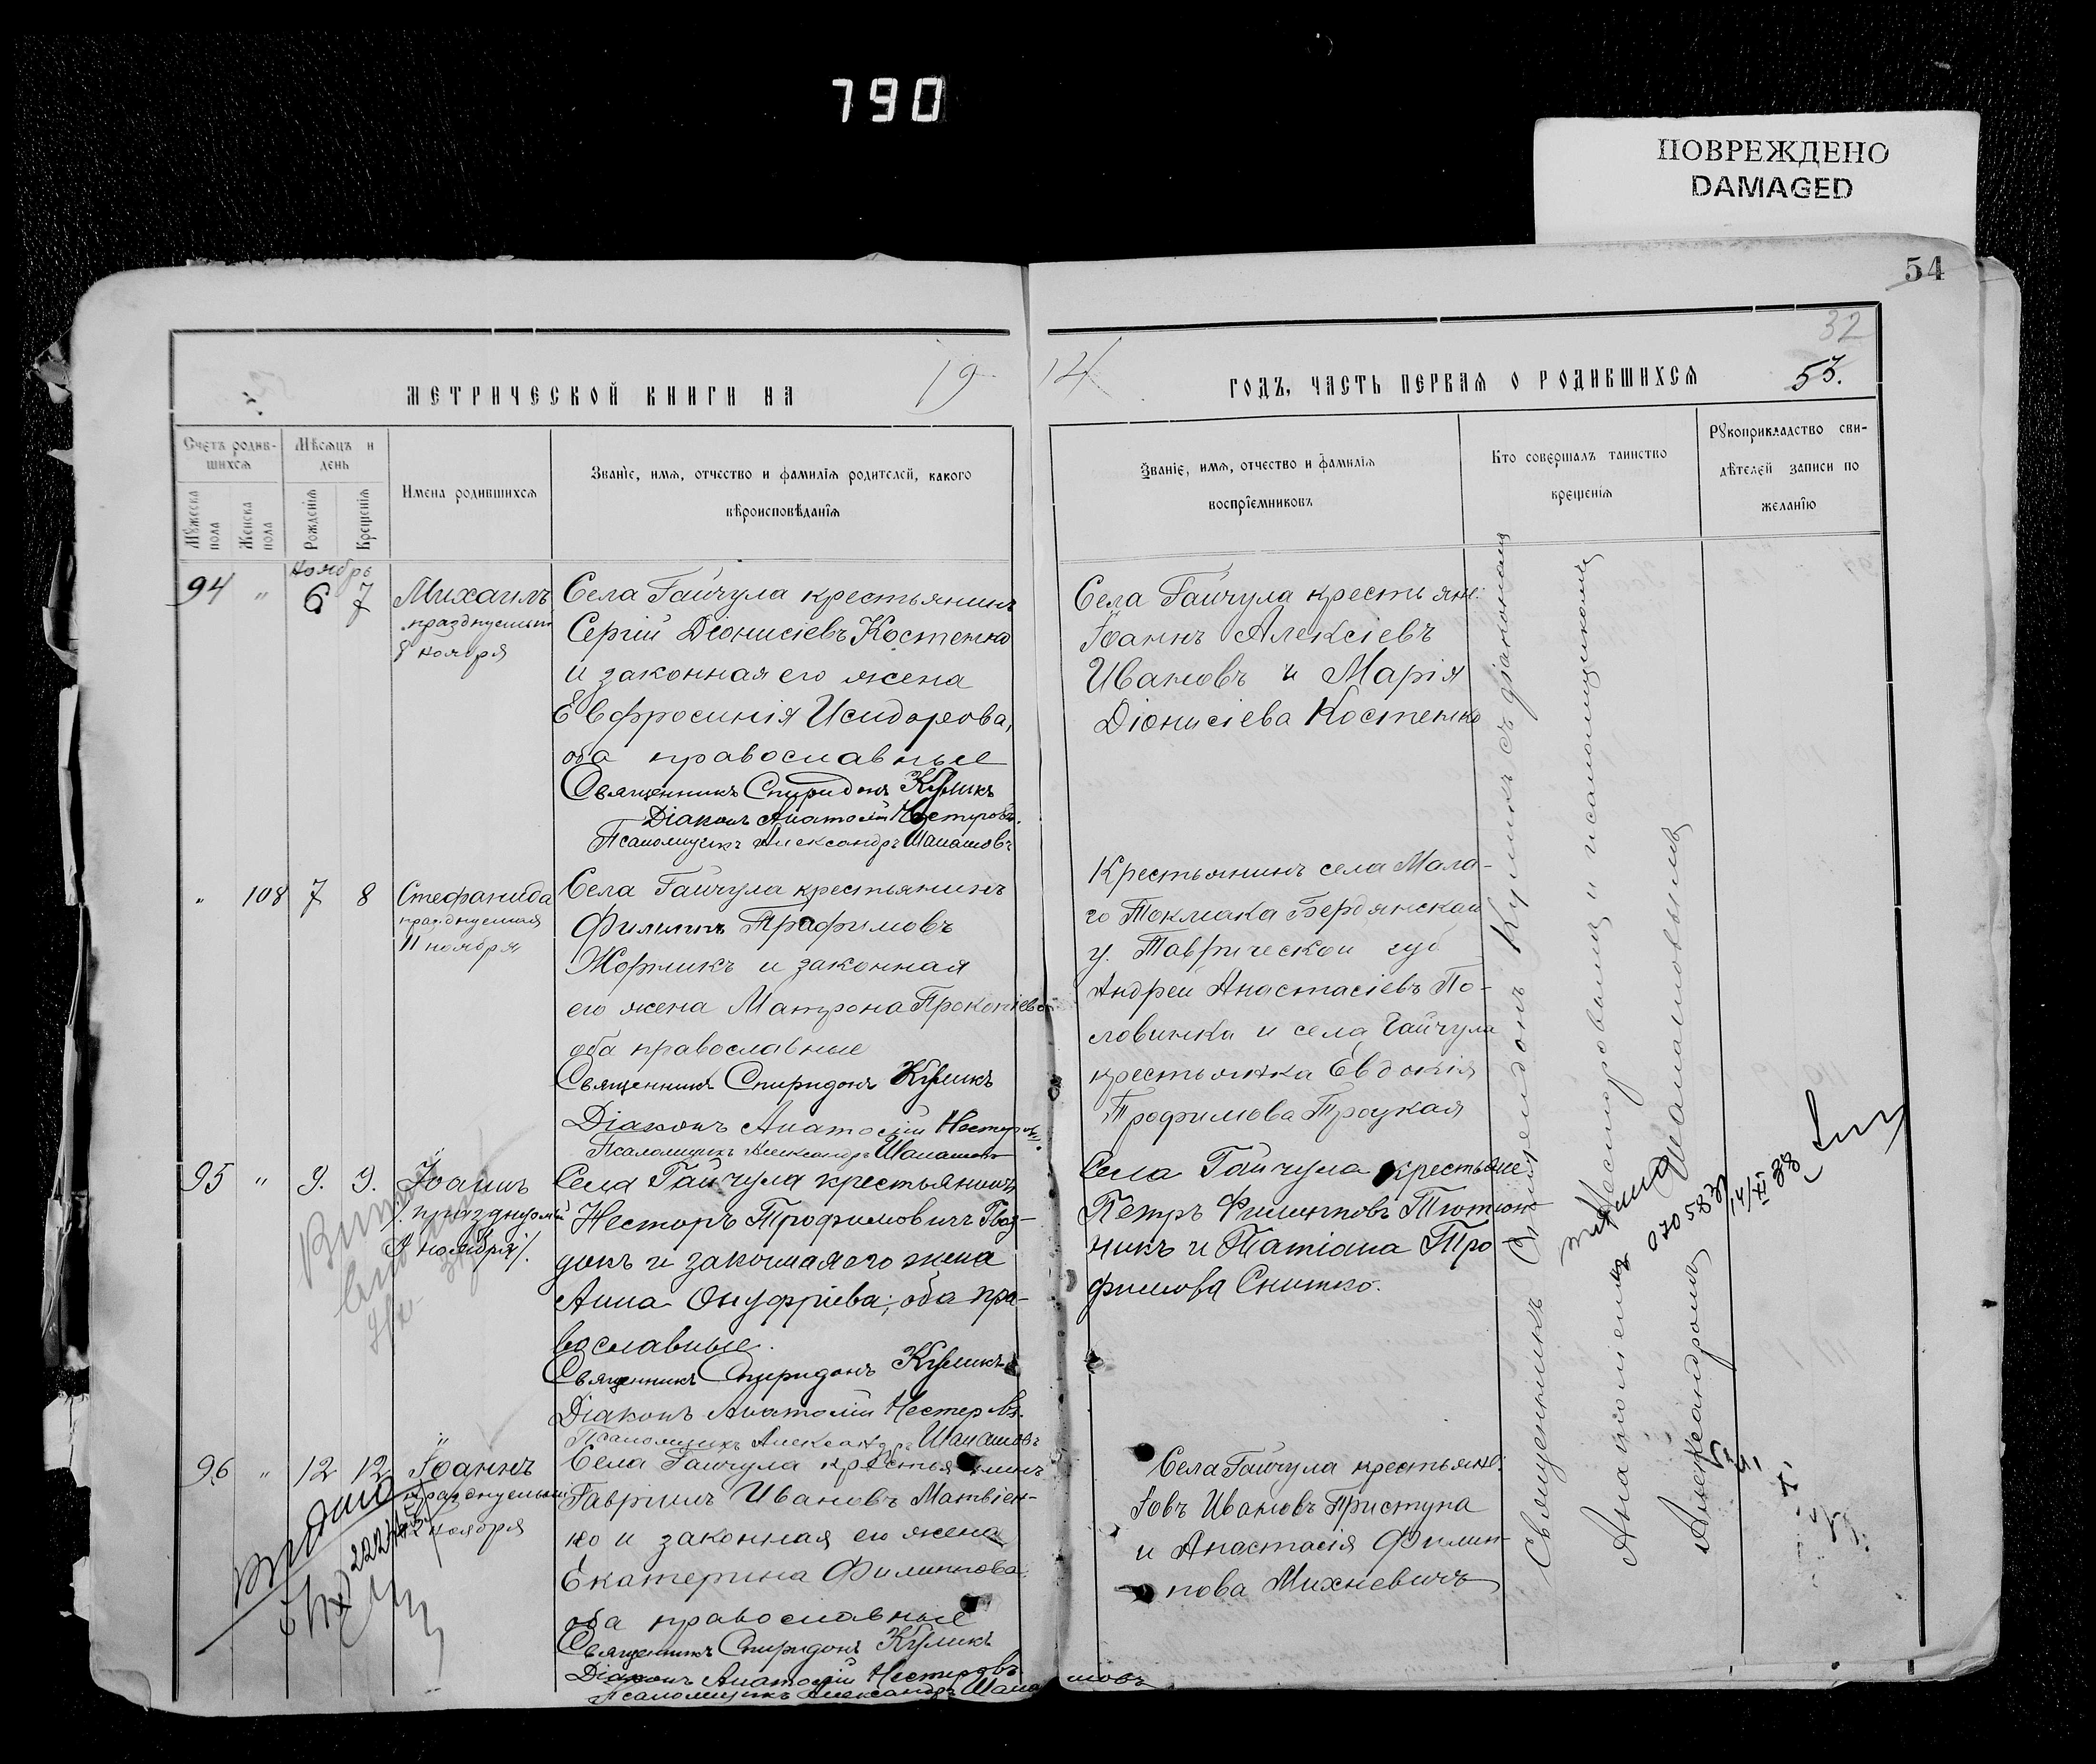 790
ПОВРЕЖДЕНО
DAMAGED
54
32
53.
МЕТРИЧЕСКОЙ КНИГИ НА 19
14 ГОДЪ, ЧАСТЬ ПЕРВАЯ О РОДИВШИХСЯ
Счетъ родив-
шихся
Мѣсяцъ и
день
Мужеска
пола
Женска
пола
Рожденія
Крещенія
Имена родившихся
Званіе, имя, отчество и фамилія родителей, какого
вѣроисповѣданія
Званіе, имя, отчество и фамилія
воспріемниковъ
Кто совершалъ таинство
крещенія
Рукоприкладство сви-
дѣтелей записи по
желанію
Ноябрь
94 " 6 7
Михаилъ
празднуемый
8 ноября
Села Гайчула крестьянинъ
Сергій Діонисіевъ Костенко
и законная его жена
Евфросинія Исидорова,
оба православные
Священникъ Спиридонъ Куликъ
Діаконъ Анатолій Нестеровъ.
Псаломщикъ Александръ Шапашовъ
Села Гайчула крестьяне:
Іоаннъ Алексіевъ
Ивановъ и Марія
Діонисіева Костенко
" 108 7 8
Стефанида
празднуемая
11 ноября
Села Гайчула крестьянинъ
Филиппъ Трофимовъ
Жорникъ и законная
его жена Матрона Прокопіева
оба православные
Священникъ Спиридонъ Куликъ
Діаконъ Анатолій Нестеровъ.
Псаломщикъ Александръ Шапашовъ
Крестьянинъ села Мала-
го Токмака Бердянскаго
у. Таврической губ
Андрей Анастасіевъ По-
ловинка и села Гайчула
крестьянка Евдокія
Трофимова Троцкая
95 " 9. 9.
Іоаннъ
/. празднуемый
9 ноября /.
Села Гайчула крестьянинъ
Несторъ Трофимовичъ Гвоз-
дикъ и законная его жена
Анна Онуфріева; оба пра-
вославные.
Священникъ Спиридонъ Куликъ
Діаконъ Анатолій Нестеровъ.
Псаломщикъ Александръ Шапашовъ
Села Гайчула крестьяне
Петръ Филипповъ Тютюн-
никъ и Татіана Тро
фимова Снитко.
96 " 12 12
Іоаннъ
празднуемый
12 ноября
Села Гайчула крестьянинъ
Гавріилъ Ивановъ Матвіен-
ко и законная его жена
Екатерина Филиппова:
оба православные
Священникъ Спиридонъ Куликъ
Діаконъ Анатолій Нестеровъ
Псаломщикъ Александръ Шапашовъ
Села Гайчула крестьяне:
Іовъ Ивановъ Приступа
и Анастасія Филип-
пова Михневичъ
Священникъ Спиридонъ Куликъ съ діакономъ
Анатоліемъ Нестеровымъ и псаломщикомъ
Александромъ Шапашовымъ